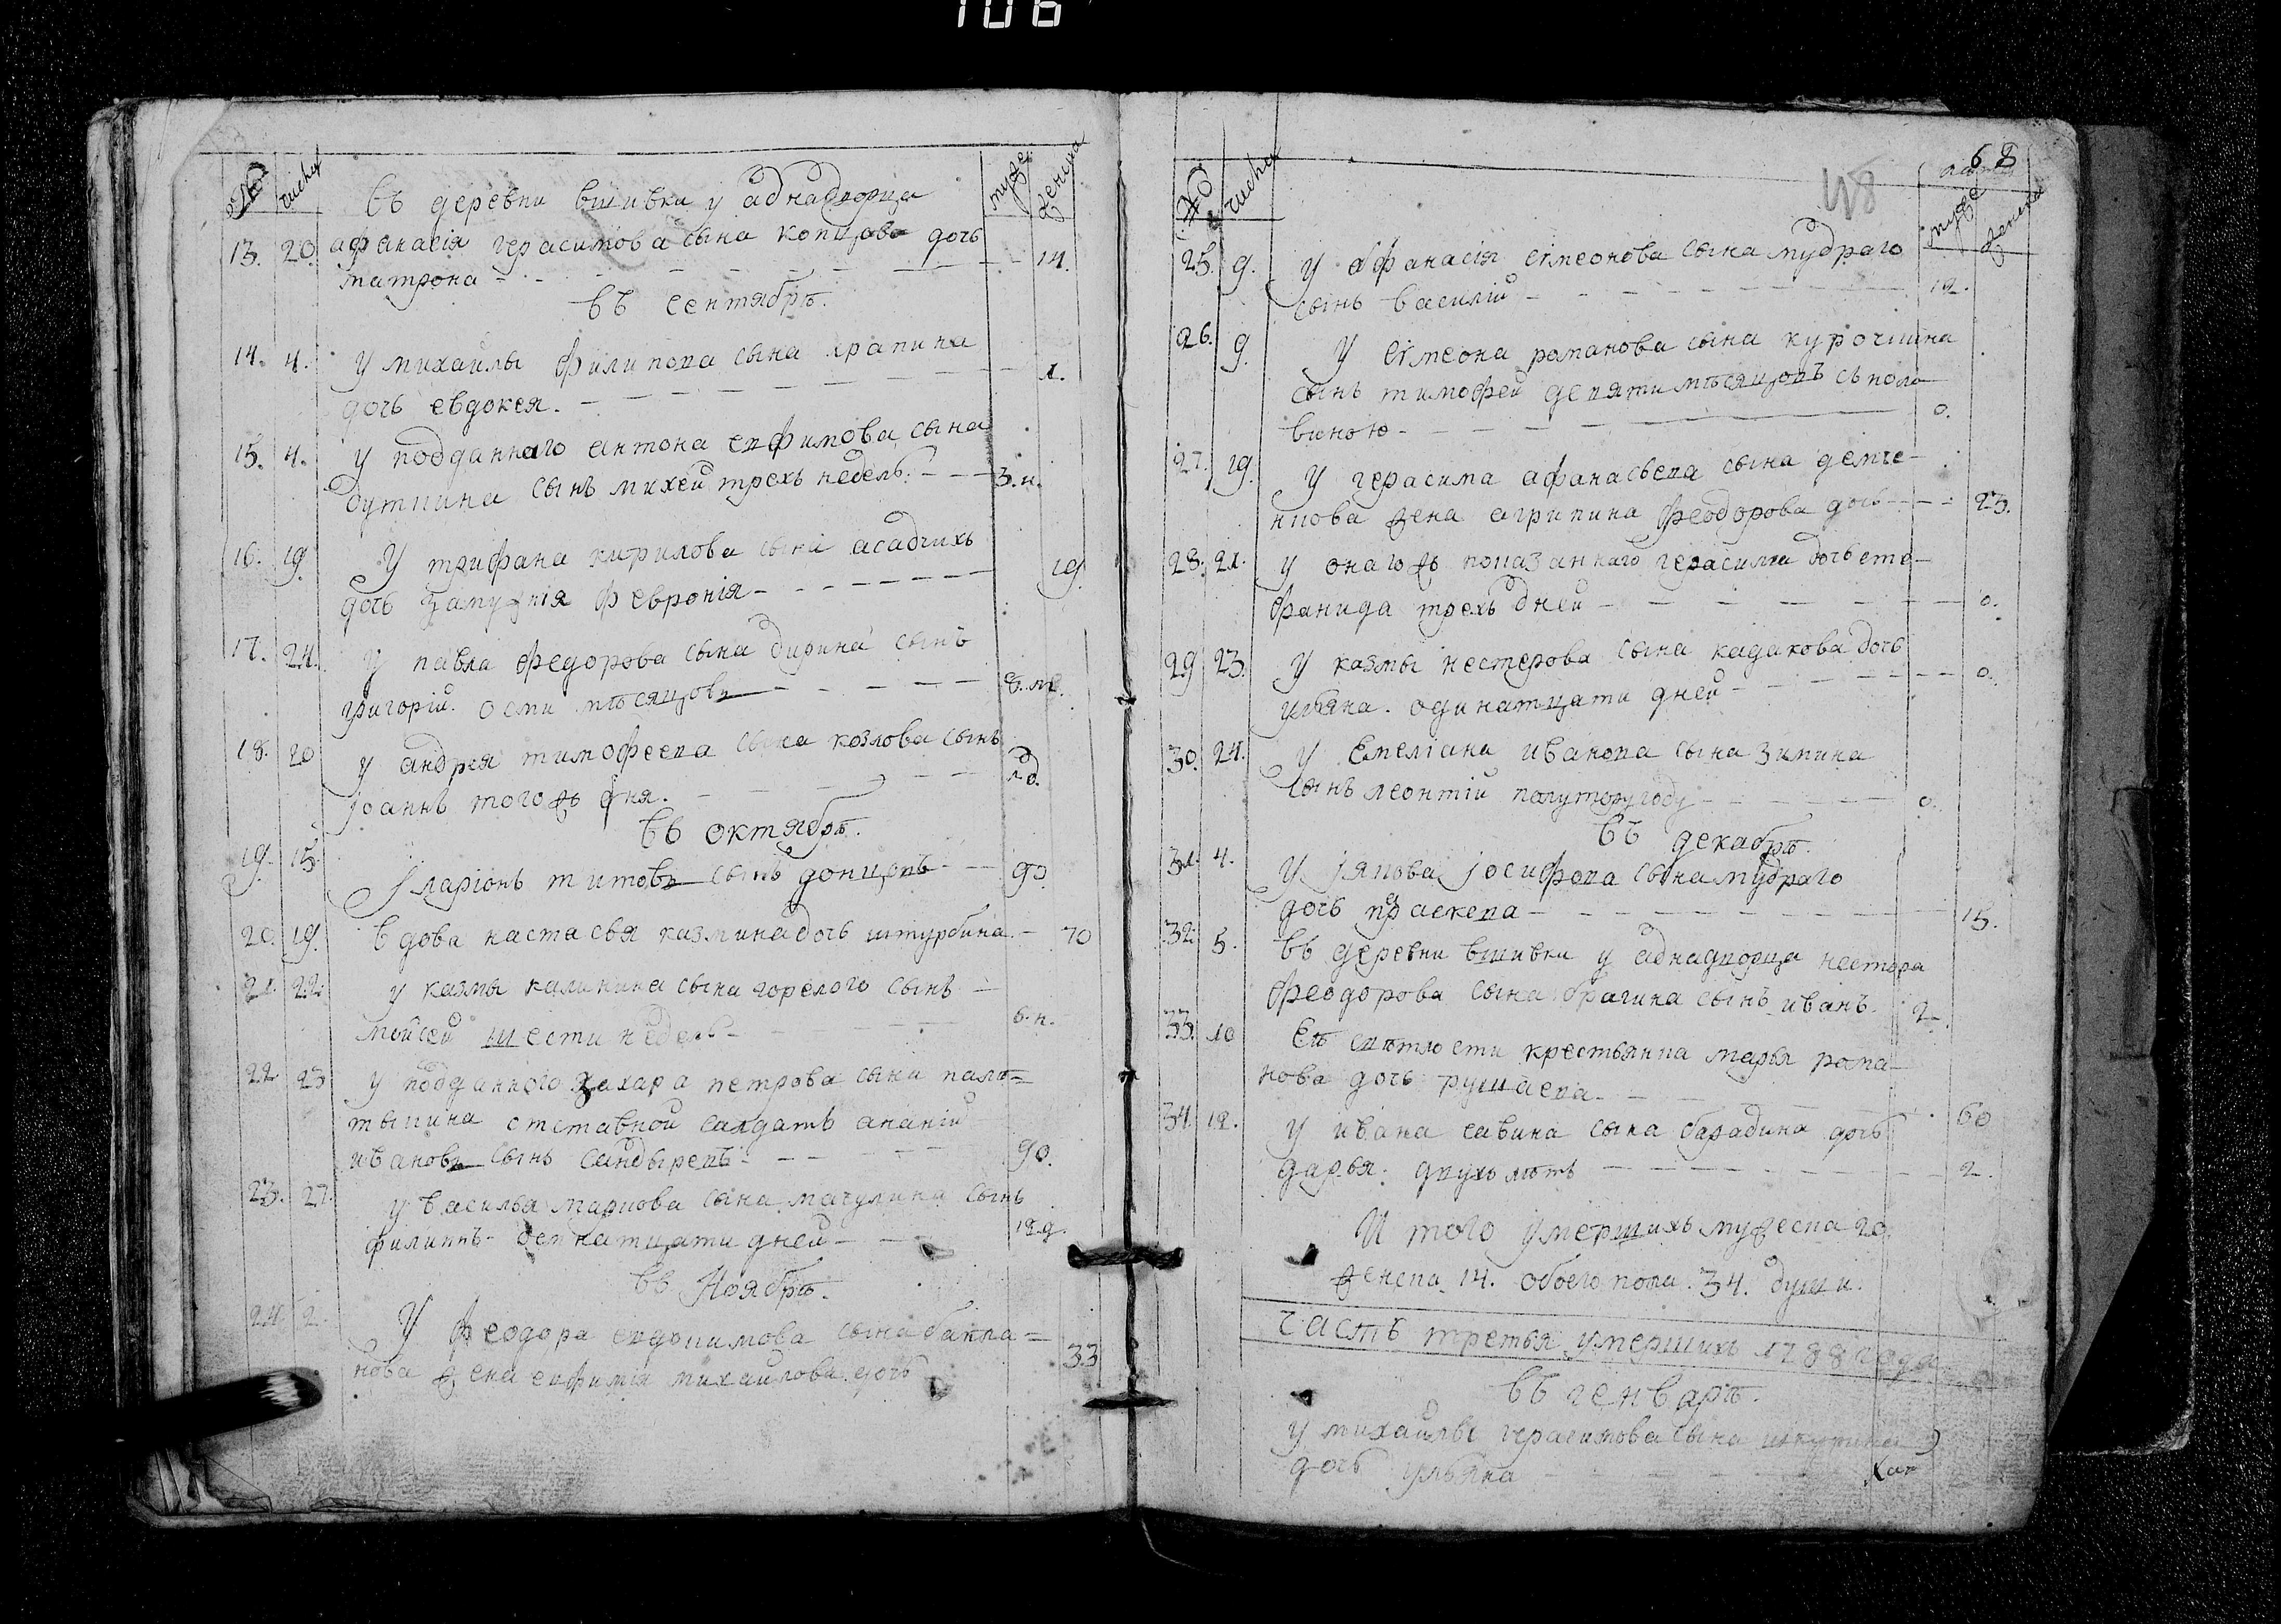 106
№ числа муже женска
въ деревни вшивки у аднадворца
13. 20. афанасія герасимова сына копцова дочь
матрона - 14.
въ сентябрѣ.
14. 4. у михайлы филипова сына храпина
дочь евдокея. - 1.
15. 4. у подданнаго антона евфимова сына
сынъ михей трехъ недель. - 3. н.
16. 19 У трифана кирилова сына асадчихъ
дочь замужнія февронія - 19
17. 24. у павла федорова сына дирина сынъ
григорій. осми мѣсяцовъ - 8. м.
18. 20 у андрея тимофеева сына козлова сынъ
іоаннъ тогожъ дня. - 1 д.
въ октябрѣ.
19. 15. Іларіонъ титовъ сынъ донцовъ - 90
20. 19. вдова настасья казмина дочь штурбина - 70
21. 22. у казмы калинина сына горелого сынъ -
мойсей шести недель - 6. н.
22. 23 у подданного захара петрова сына пала=
тыпина отставной салдатъ ананій
ивановъ сынъ сандыревъ - 90.
23. 27. у василья маркова сына мачулина сынъ
филиппъ - двенатцати дней - 12 д.
въ Ноябрѣ.
24. 2. У феодора евдокимова сына бакла=
нова жена евфимія михайлова дочь 33
№ числа лѣты муже женска
68
48
25. 9. У афанасія сімеонова сына мудраго
сынъ василій - 12.
26. 9 У сімеона романова сына курочкина
сынъ тимофей девяти мѣсяцовъ съ поло
виною - 0.
27. 19 У герасима афанасьева сына демче-
нкова жена агрипина феодорова дочь - 23.
28. 21. у онагожъ показаннаго герасима дочь сте-
фанида трехъ дней - 0.
29 23. У казмы нестерова сына кадакова дочь
ульяна. одинатцати дней - 0.
30. 24. У Емеліана иванова сына зимина
сынъ леонтій полуторугоду - 0.
въ декабрѣ.
31. 4. У іякова іосифова сына мудраго
дочь праскева - 15.
32. 5. въ деревни вшивки у аднадворца нестора
феодорова сына брагина сынъ иванъ. 2.
33. 10 Еѣ свѣтлости крестьянка марья рома-
нова дочь рушаева - 60
34. 12. У ивана савина сына барадина дочь
дарья. двухъ лѣтъ - 2.
И того умершихъ мужеска 20.
женска. 14. обоего пола. 34. души.
часть третья умершихъ 1788 года
въ генварѣ.
у михайлы герасимова сына шкурина
дочь ульяна -